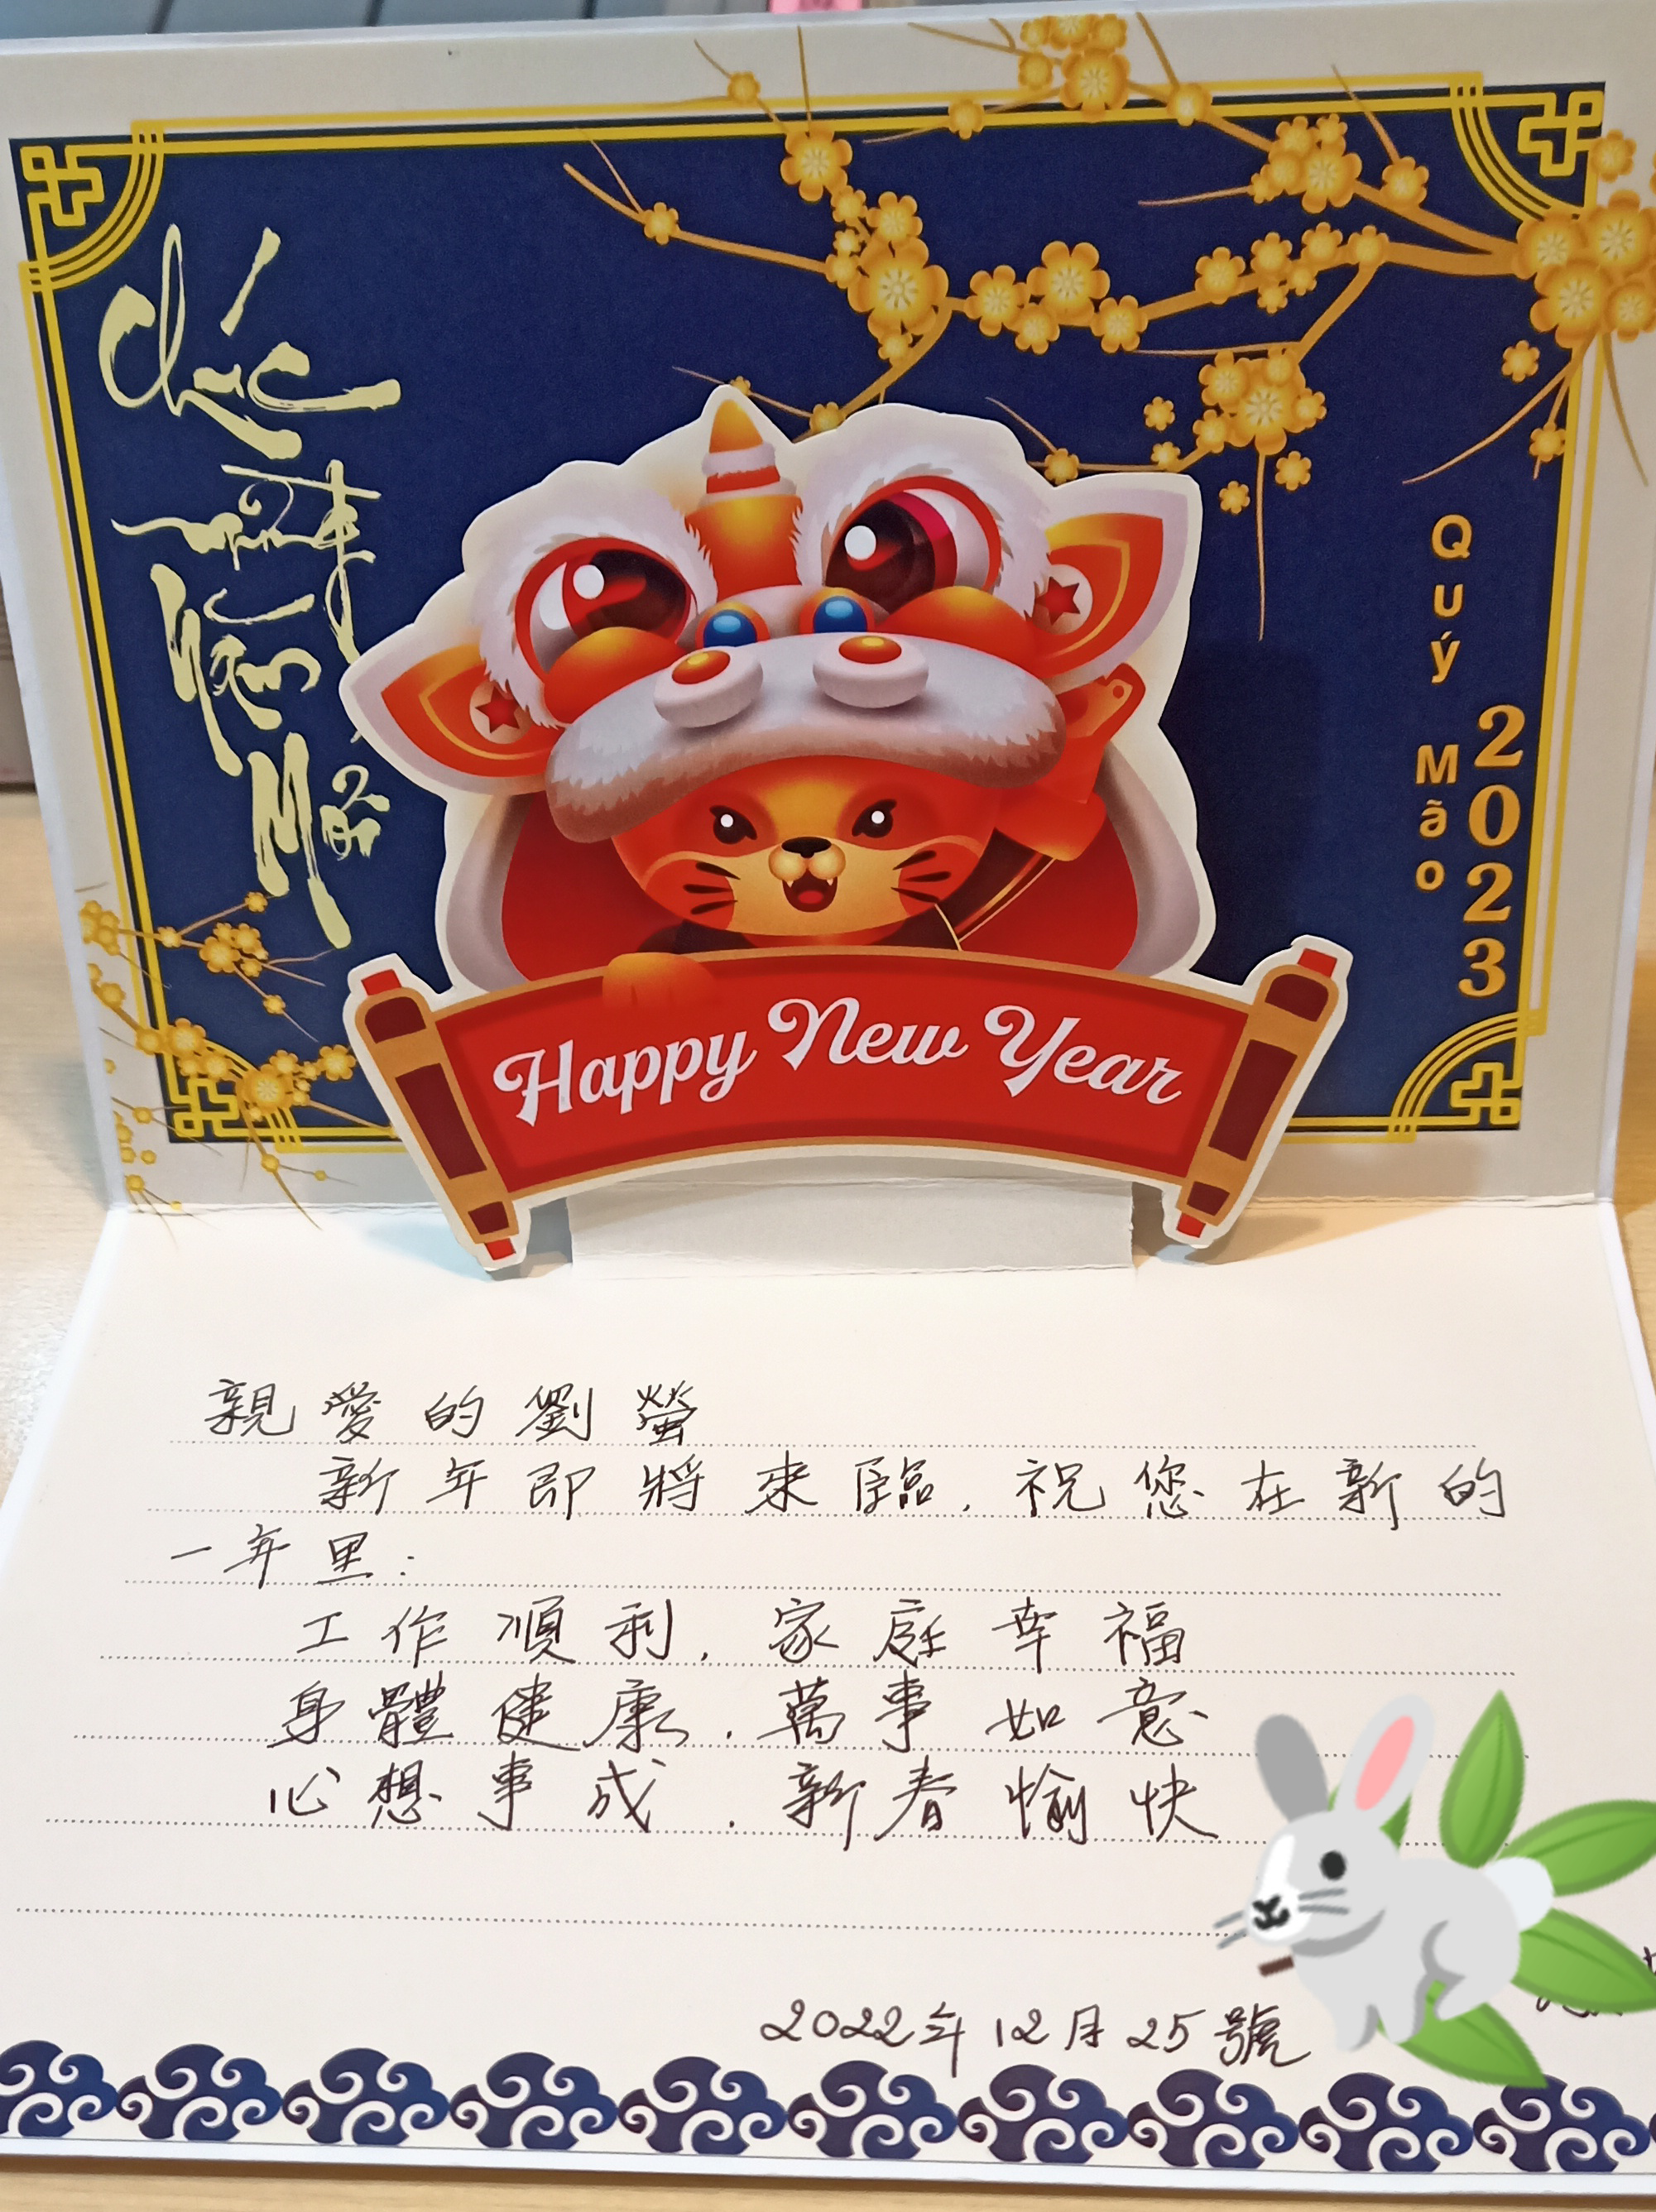 Chúc
mừng
Năm
Mới
Quý Mão
2023
Happy New Year
親愛的劉螢
新年即將來臨,祝您在新的
一年里:
工作順利,家庭幸福
身體健康,萬事如意
心想事成,新春愉快
2022年12月25號